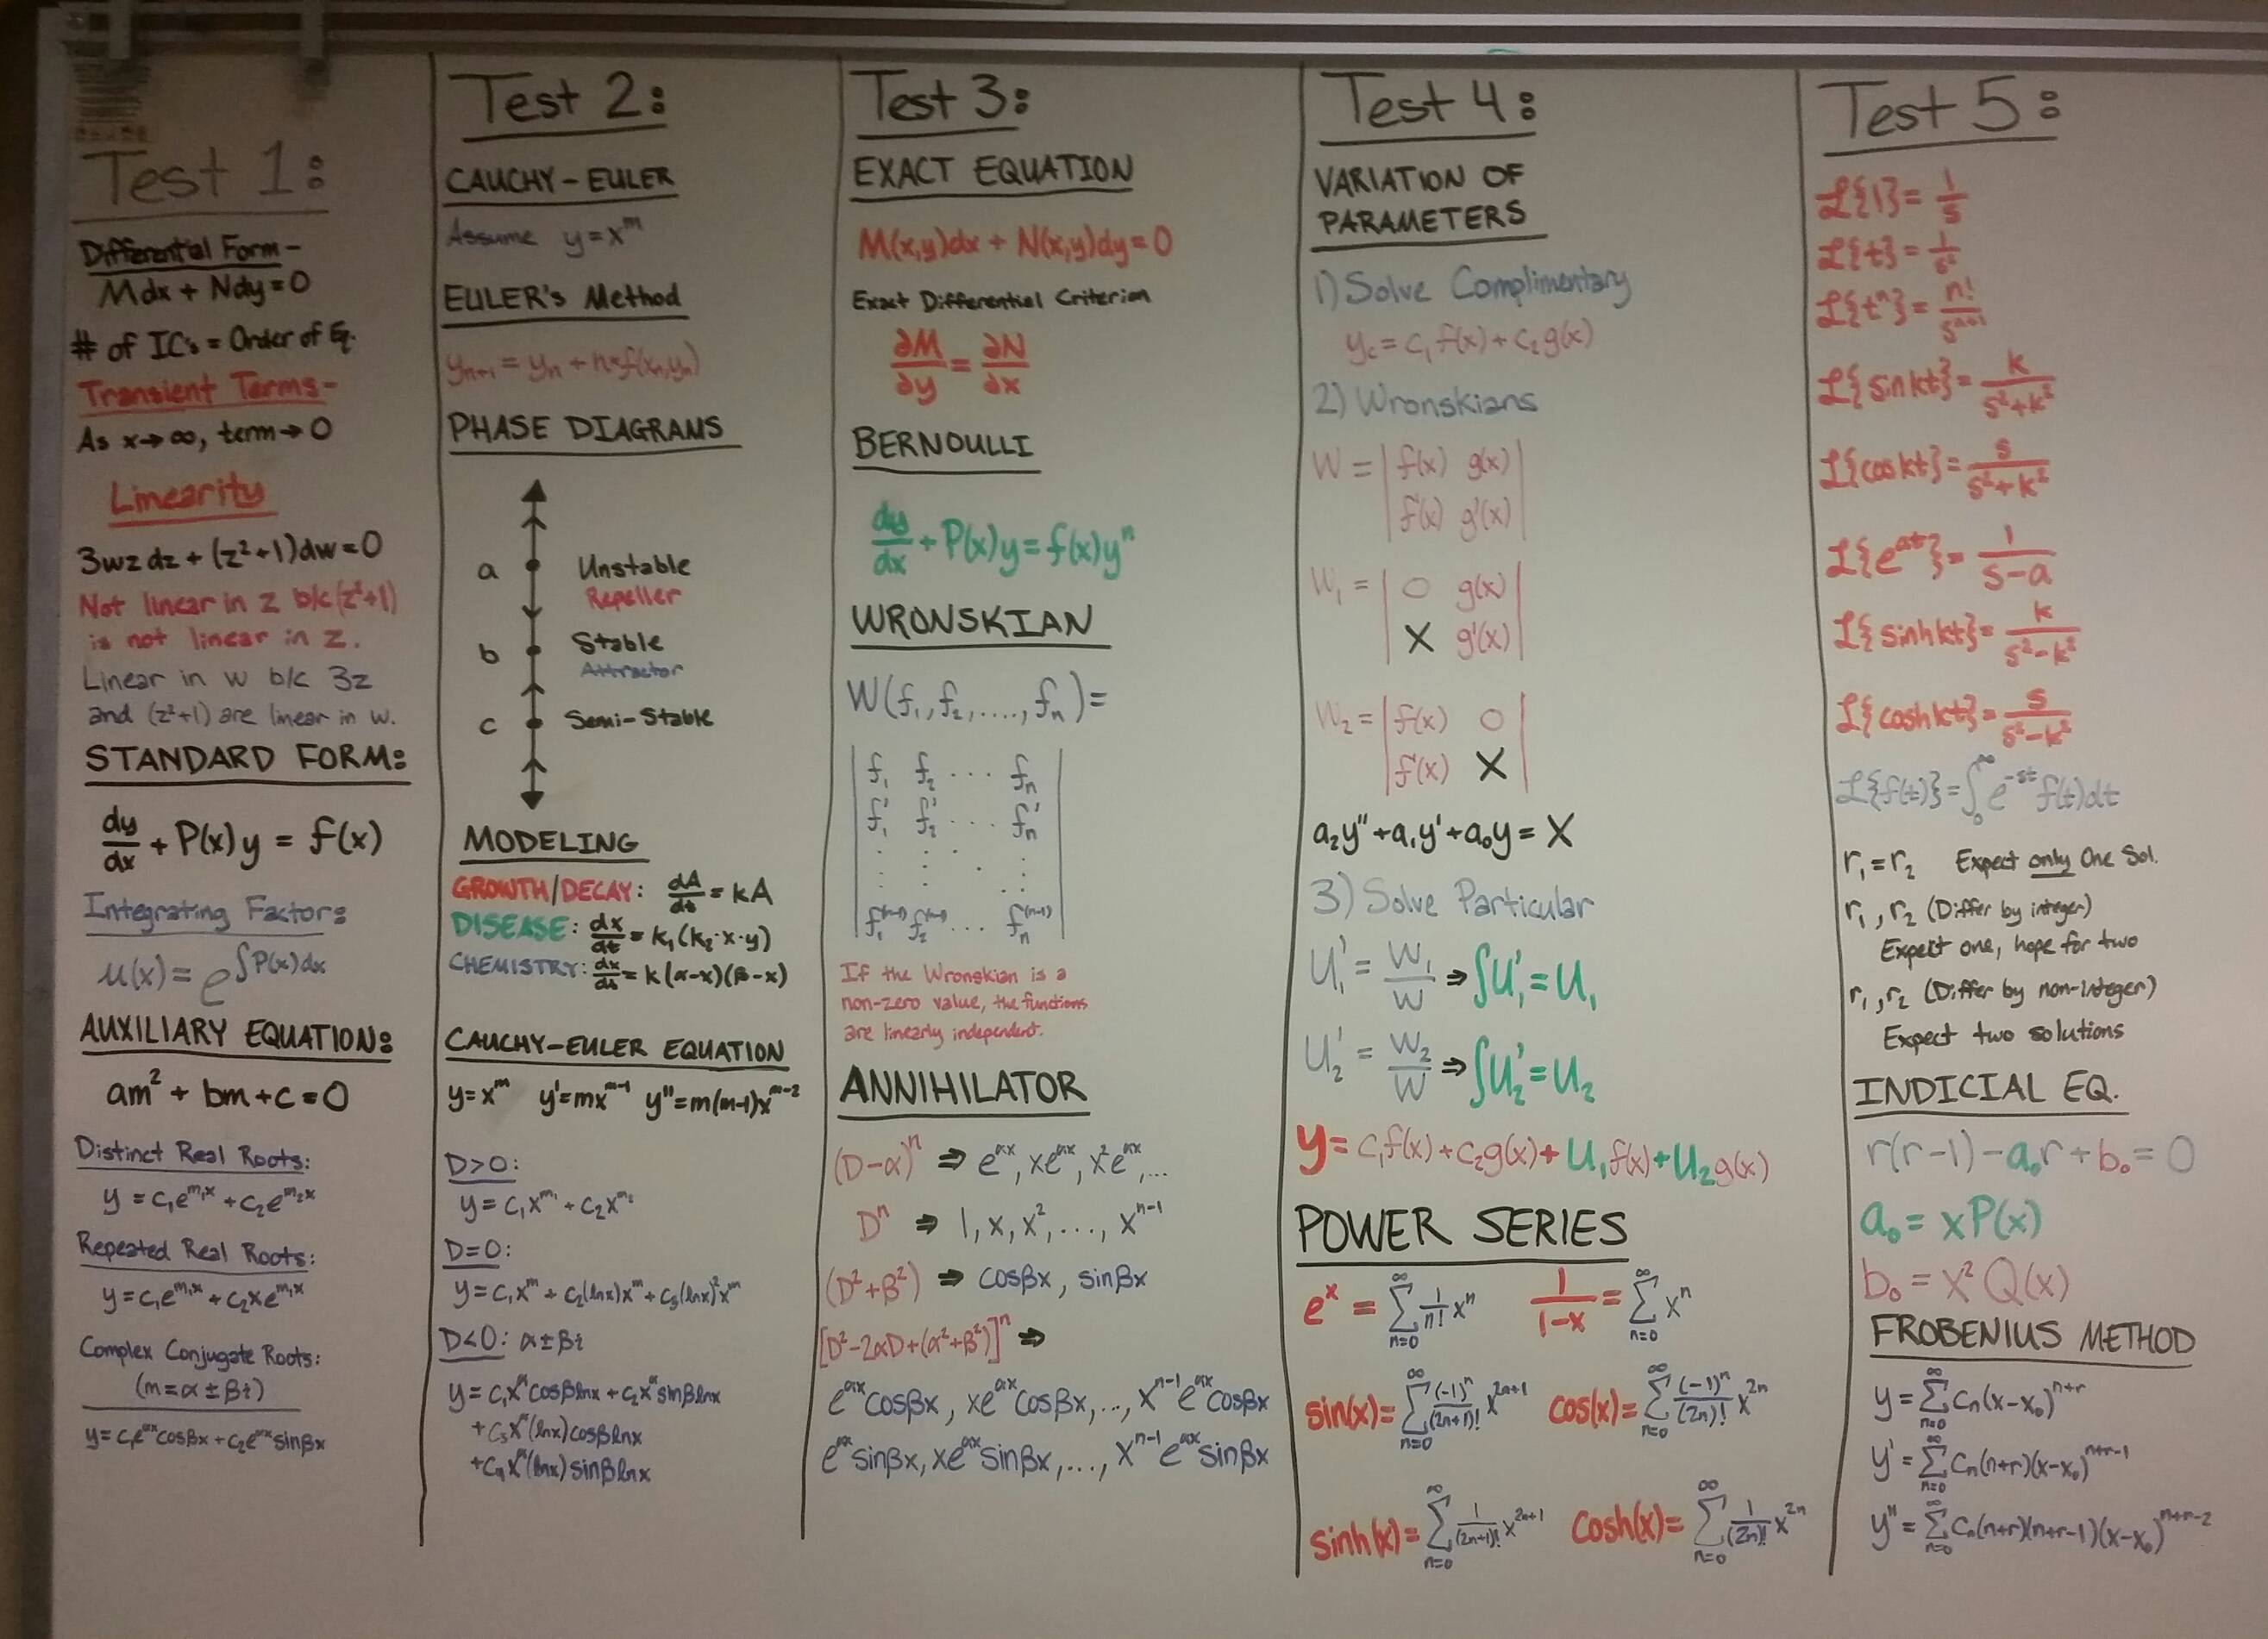 Test 1:
Differential Form-
Mdx + Ndy = 0
# of IC's = Order of Eq.
Transient Terms-
As x→∞, term→0
Linearity
3wz dz + (z²+1)dw = 0
Not linear in z b/c (z²+1)
is not linear in z.
Linear in w b/c 3z
and (z²+1) are linear in w.
STANDARD FORM:
dy/dx + P(x)y = f(x)
Integrating Factor:
μ(x) = e^∫P(x)dx
AUXILIARY EQUATION:
am² + bm + c = 0
Distinct Real Roots:
y = c₁e^m₁x + c₂e^m₂x
Repeated Real Roots:
y = c₁e^m₁x + c₂xe^m₁x
Complex Conjugate Roots:
(m = α ± βi)
y = c₁e^αx cosβx + c₂e^αx sinβx
Test 2:
CAUCHY-EULER
Assume y = x^m
EULER's Method
yₙ₊₁ = yₙ + h*f(xₙ,yₙ)
PHASE DIAGRAMS
a Unstable
Repeller
b Stable
Attractor
c Semi-Stable
MODELING
GROWTH/DECAY: dA/dt = kA
DISEASE: dx/dt = k₁(k₂·x·y)
CHEMISTRY: dx/dt = k(α-x)(β-x)
CAUCHY-EULER EQUATION
y = x^m y' = mx^(m-1) y'' = m(m-1)x^(m-2)
D>0:
y = c₁x^m₁ + c₂x^m₂
D=0:
y = c₁x^m + c₂(lnx)x^m + c₃(lnx)²x^m
D<0: α ± βi
y = c₁x^α cosβlnx + c₂x^α sinβlnx
+ c₃x^α(lnx)cosβlnx
+ c₄x^α(lnx)sinβlnx
Test 3:
EXACT EQUATION
M(x,y)dx + N(x,y)dy = 0
Exact Differential Criterion
∂M/∂y = ∂N/∂x
BERNOULLI
dy/dx + P(x)y = f(x)yⁿ
WRONSKIAN
W(f₁, f₂, ...., fₙ) =
| f₁ f₂ ... fₙ |
| f₁' f₂' ... fₙ' |
| . . . . |
| . . . . |
| f₁^(n-1) f₂^(n-1) ... fₙ^(n-1) |
If the Wronskian is a
non-zero value, the functions
are linearly independent.
ANNIHILATOR
(D-α)ⁿ ⇒ e^αx, xe^αx, x²e^αx, ...
Dⁿ ⇒ 1, x, x², ..., x^(n-1)
(D²+β²) ⇒ cosβx, sinβx
[D²-2αD+(α²+β²)]ⁿ ⇒
e^αx cosβx, xe^αx cosβx, ..., x^(n-1)e^αx cosβx
e^αx sinβx, xe^αx sinβx, ..., x^(n-1)e^αx sinβx
Test 4:
VARIATION OF
PARAMETERS
1) Solve Complimentary
y_c = c₁f(x) + c₂g(x)
2) Wronskians
W = | f(x) g(x) |
| f'(x) g'(x) |
W₁ = | 0 g(x) |
| X g'(x) |
W₂ = | f(x) 0 |
| f'(x) X |
a₂y'' + a₁y' + a₀y = X
3) Solve Particular
U₁' = W₁/W ⇒ ∫U₁' = U₁
U₂' = W₂/W ⇒ ∫U₂' = U₂
y = c₁f(x) + c₂g(x) + U₁f(x) + U₂g(x)
POWER SERIES
e^x = ∑ₙ₌₀^∞ 1/n! xⁿ 1/(1-x) = ∑ₙ₌₀^∞ xⁿ
sin(x) = ∑ₙ₌₀^∞ (-1)ⁿ/(2n+1)! x^(2n+1) cos(x) = ∑ₙ₌₀^∞ (-1)ⁿ/(2n)! x^(2n)
sinh(x) = ∑ₙ₌₀^∞ 1/(2n+1)! x^(2n+1) cosh(x) = ∑ₙ₌₀^∞ 1/(2n)! x^(2n)
Test 5:
ℒ{1} = 1/s
ℒ{t} = 1/s²
ℒ{tⁿ} = n!/s^(n+1)
ℒ{sinkt} = k/(s²+k²)
ℒ{coskt} = s/(s²+k²)
ℒ{e^at} = 1/(s-a)
ℒ{sinhkt} = k/(s²-k²)
ℒ{coshkt} = s/(s²-k²)
ℒ{f(t)} = ∫₀^∞ e^(-st) f(t)dt
r₁ = r₂ Expect only One Sol.
r₁, r₂ (Differ by integer)
Expect one, hope for two
r₁, r₂ (Differ by non-integer)
Expect two solutions
INDICIAL EQ.
r(r-1) - a₀r + b₀ = 0
a₀ = xP(x)
b₀ = x²Q(x)
FROBENIUS METHOD
y = ∑ₙ₌₀^∞ cₙ(x-x₀)^(n+r)
y' = ∑ₙ₌₀^∞ cₙ(n+r)(x-x₀)^(n+r-1)
y'' = ∑ₙ₌₀^∞ cₙ(n+r)(n+r-1)(x-x₀)^(n+r-2)